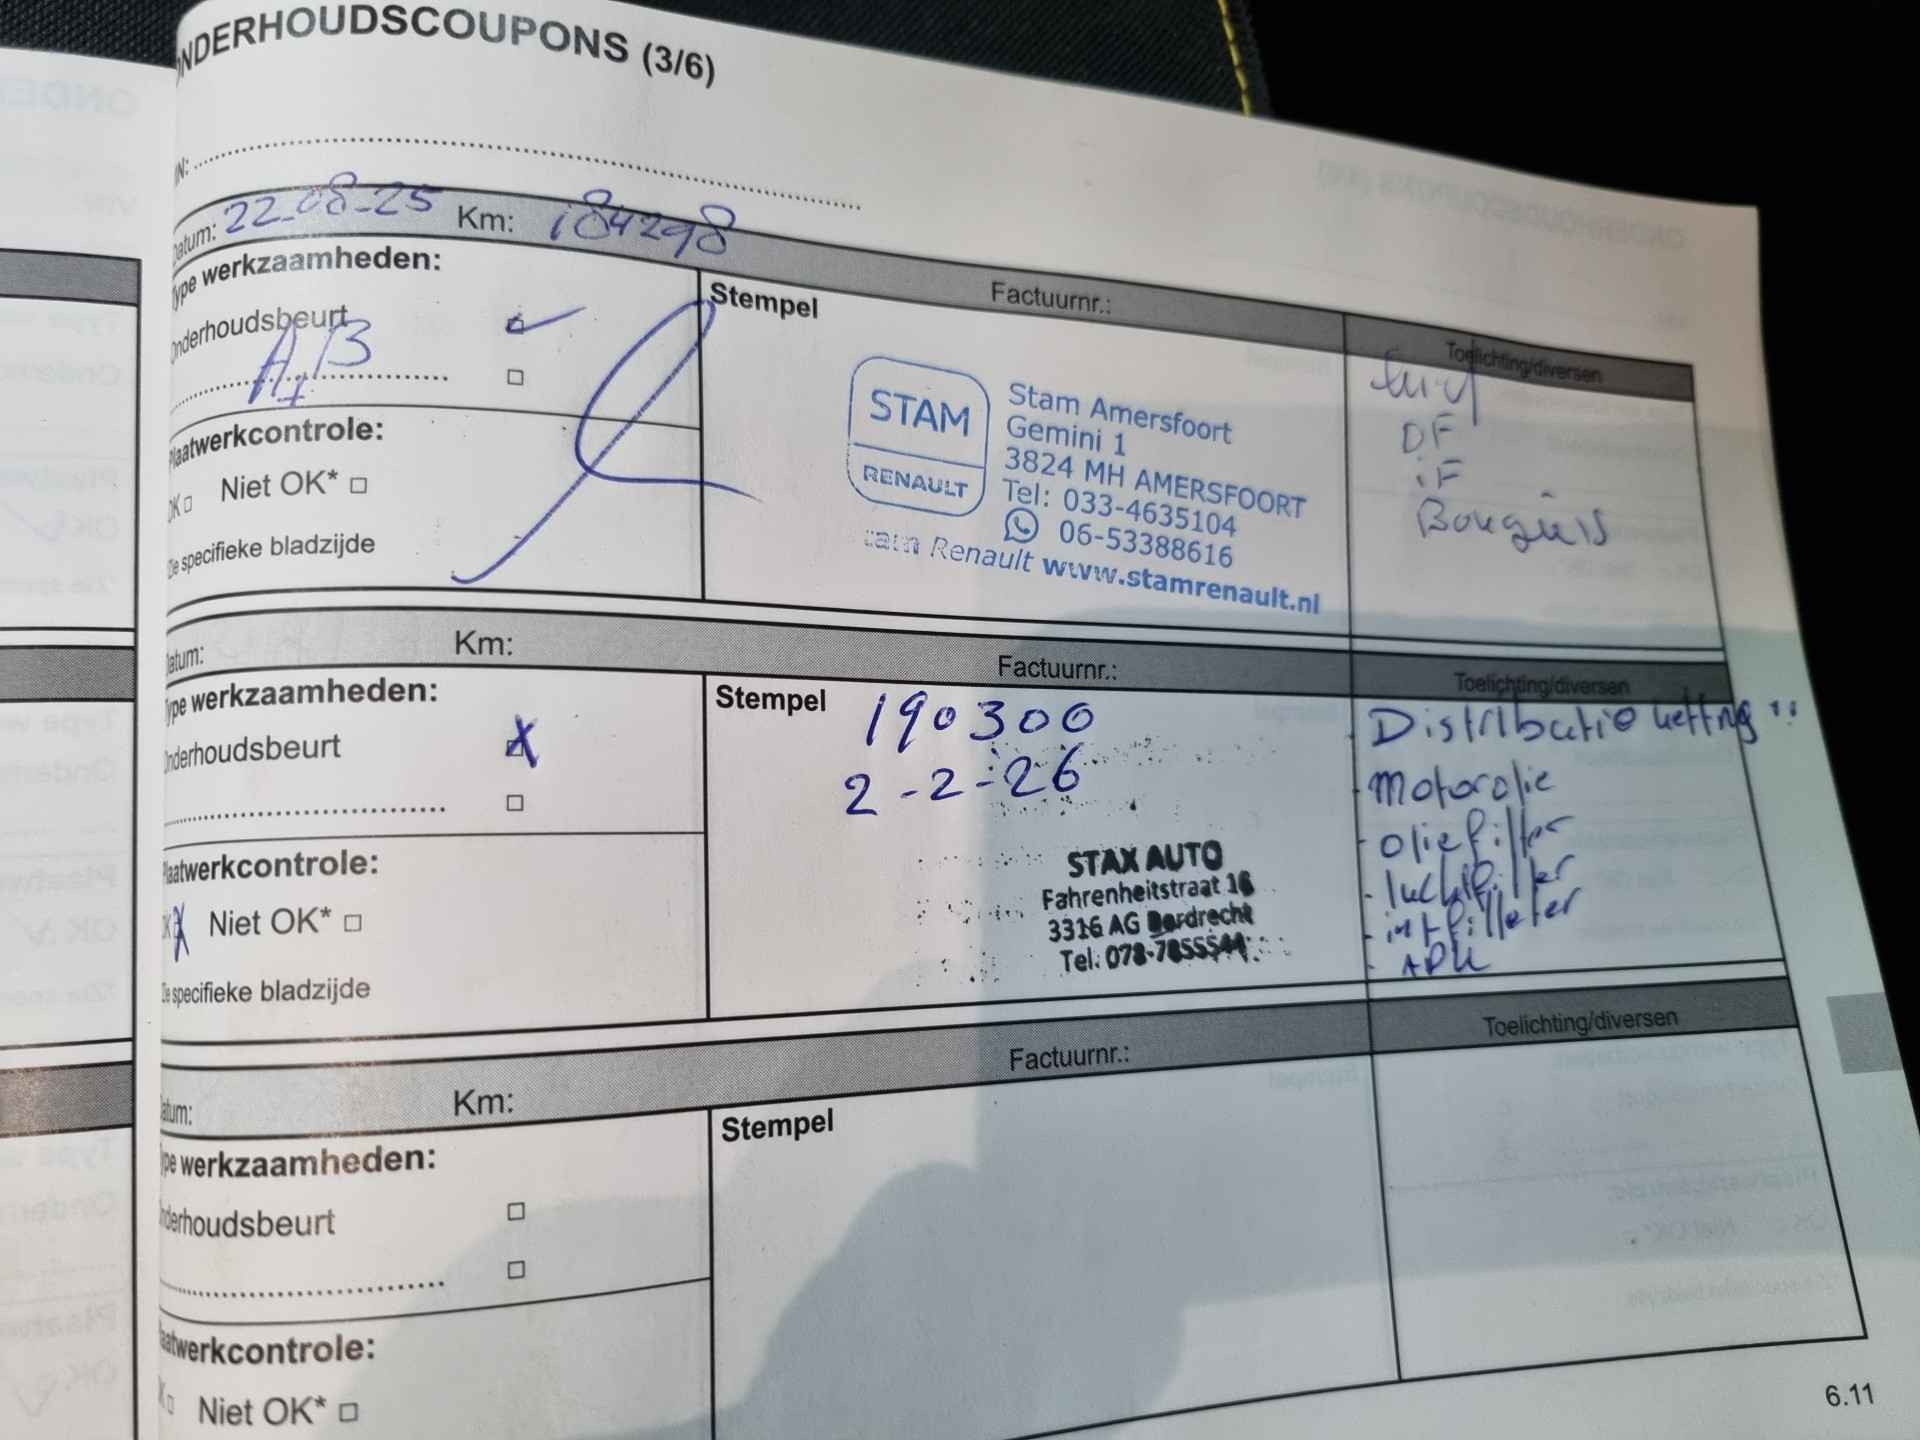 ONDERHOUDSCOUPONS (3/6)
Datum: 22-08-25 Km: 184298 Factuurnr.:
Type werkzaamheden:
Onderhoudsbeurt
A+B
Plaatwerkcontrole:
OK Niet OK*
*Zie specifieke bladzijde
Stempel
STAM
RENAULT
Stam Amersfoort
Gemini 1
3824 MH AMERSFOORT
Tel: 033-4635104
06-53388616
Stam Renault www.stamrenault.nl
Toelichting/diversen
OF
iF
Bougies
Datum: Km: Factuurnr.:
Type werkzaamheden:
Onderhoudsbeurt X
Plaatwerkcontrole:
OK X Niet OK*
*Zie specifieke bladzijde
Stempel
190300
2-2-26
STAX AUTO
Fahrenheitstraat 16
3316 AG Dordrecht
Tel. 078-7855544
Toelichting/diversen
- Distributie ketting !!
- Motorolie
- oliefilter
- luchtfilter
- intfilleter
- APK
Datum: Km: Factuurnr.:
Type werkzaamheden:
Onderhoudsbeurt
Plaatwerkcontrole:
OK Niet OK*
Stempel
Toelichting/diversen
6.11